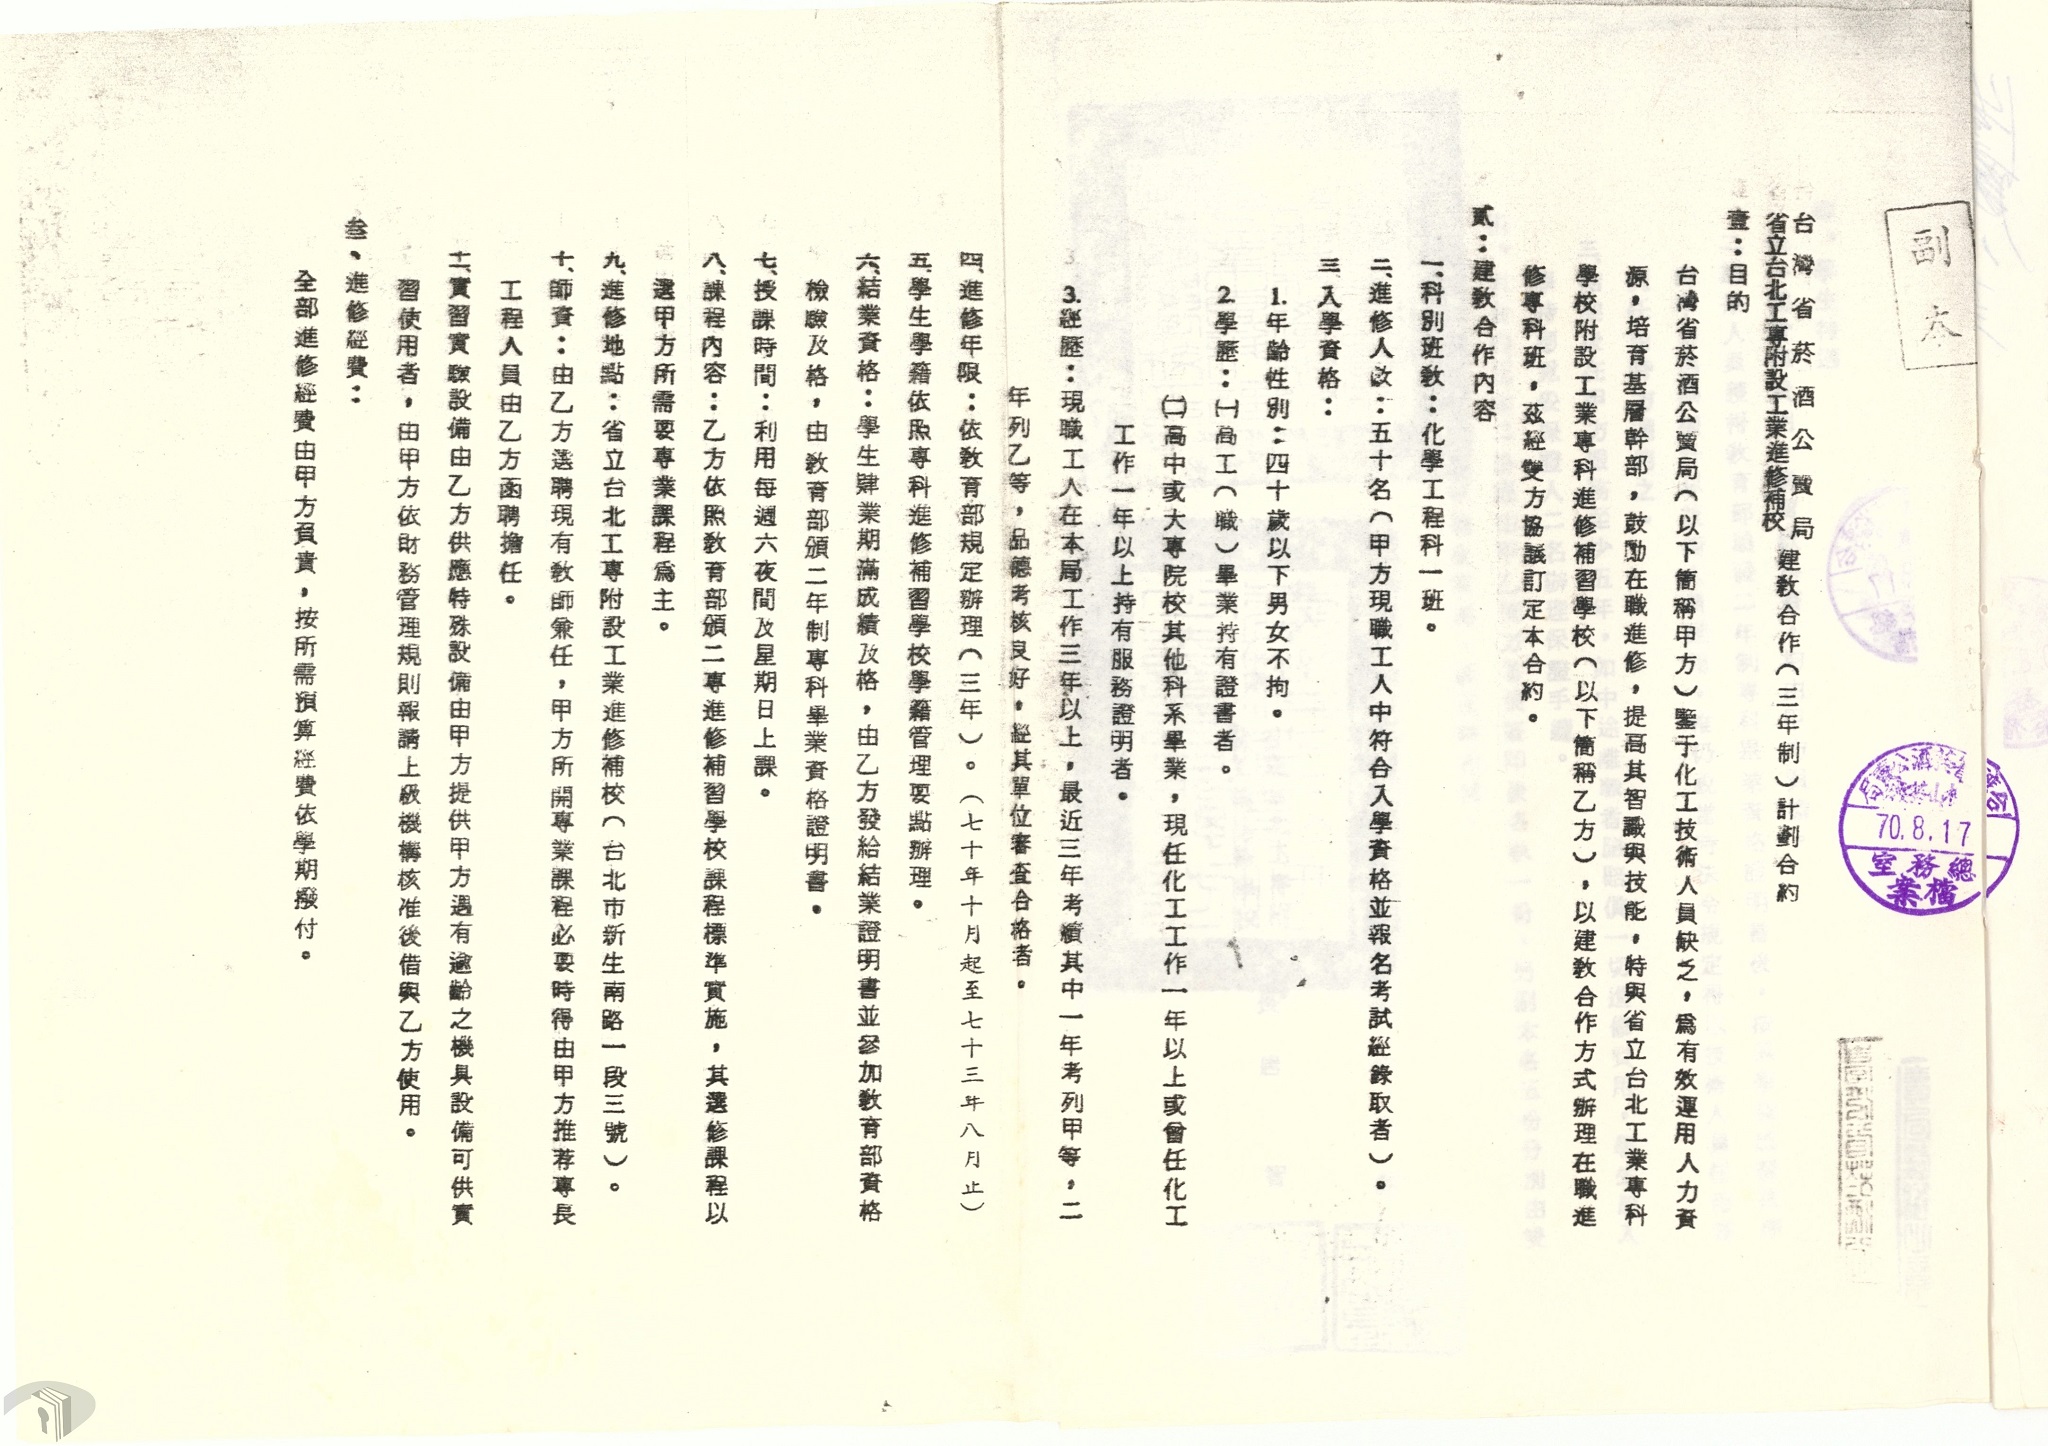 副本
台灣省菸酒公賣局
省立台北工專附設工業進修補校
建教合作（三年制）計劃合約
壹：目的
台灣省菸酒公賣局（以下簡稱甲方）鑒于化工技術人員缺乏，為有效運用人力資
源，培育基層幹部，鼓勵在職進修，提高其智識與技能，特與省立台北工業專科
學校附設工業專科進修補習學校（以下簡稱乙方），以建教合作方式辦理在職進
修專科班，茲經雙方協議訂定本合約。
貳：建教合作內容
一、科別班數：化學工程科一班。
二、進修人數：五十名（甲方現職工人中符合入學資格並報名考試經錄取者）。
三、入學資格：
1.年齡性別：四十歲以下男女不拘。
2.學歷：㈠高工（職）畢業持有證書者。
㈡高中或大專院校其他科系畢業，現任化工工作一年以上或曾任化工
工作一年以上持有服務證明者。
3.經歷：現職工人在本局工作三年以上，最近三年考績其中一年考列甲等，二
年列乙等，品德考核良好，經其單位審查合格者。
四、進修年限：依教育部規定辦理（三年）。（七十年十月起至七十三年八月止）
五、學生學籍依照專科進修補習學校學籍管理要點辦理。
六、結業資格：學生肄業期滿成績及格，由乙方發給結業證明書並參加教育部資格
檢驗及格，由教育部頒二年制專科畢業資格證明書。
七、授課時間：利用每週六夜間及星期日上課。
八、課程內容：乙方依照教育部頒二專進修補習學校課程標準實施，其選修課程以
選甲方所需要專業課程為主。
九、進修地點：省立台北工專附設工業進修補校（台北市新生南路一段三號）。
十、師資：由乙方選聘現有教師兼任，甲方所開專業課程必要時得由甲方推荐專長
工程人員由乙方函聘擔任。
十一、實習實驗設備由乙方供應特殊設備由甲方提供甲方遇有逾齡之機具設備可供實
習使用者，由甲方依財務管理規則報請上級機構核准後借與乙方使用。
叁、進修經費：
全部進修經費由甲方負責，按所需預算經費依學期撥付。
70.8.17
總務室
檔案